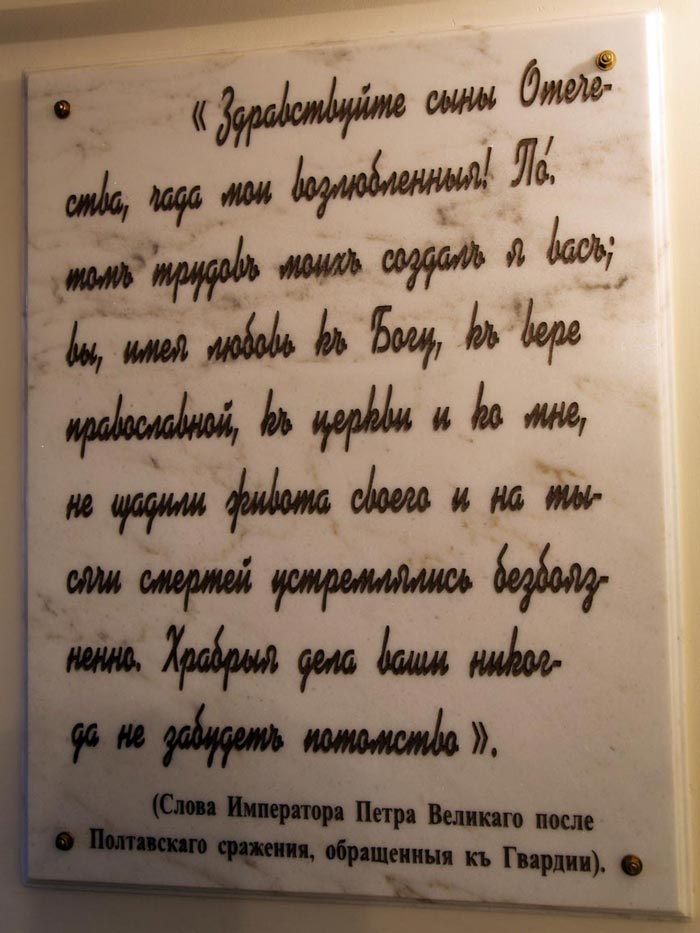 « Здравствуйте сыны Отече-
ства, чада мои возлюбленныя! По́.
томъ трудовъ моихъ создалъ я васъ;
вы, имея любовь къ Богу, къ вере
православной, къ церкви и ко мне,
не щадили живота своего и на ты-
сячи смертей устремлялись безбояз-
ненно. Храбрыя дела ваши никог-
да не забудетъ потомство ».
(Слова Императора Петра Великаго после
Полтавскаго сражения, обращенныя къ Гвардии).